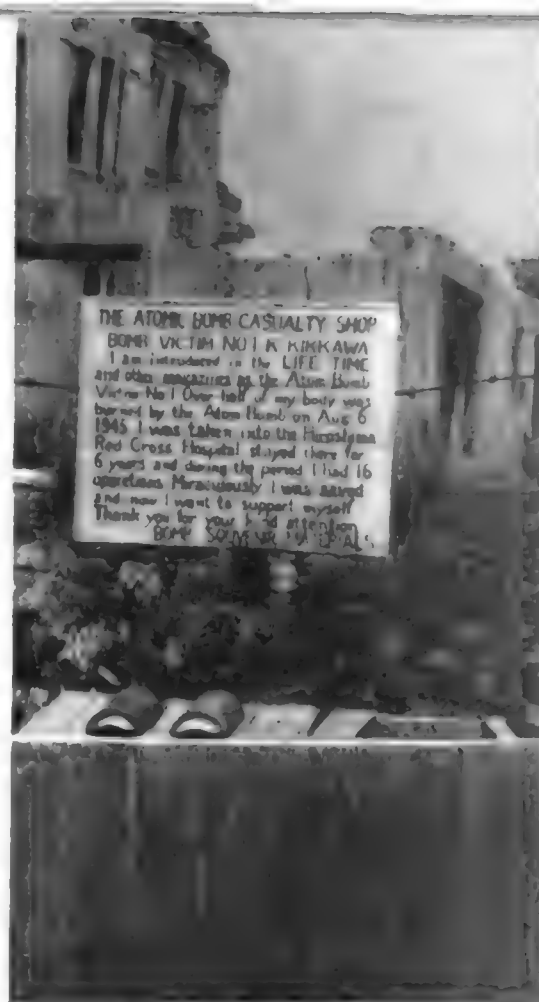 THE ATOMIC BOMB CASUALTY SHOP
BOMB VICTIM NO 1 K KIKKAWA
I am introduced in the LIFE TIME
and other magazines as the Atom Bomb
Victim No 1 Over half of my body was
burned by the Atom Bomb on Aug 6
1945 I was taken into the Hiroshima
Red Cross Hospital stayed there for
6 years and during the period I had 16
operations Miraculously I was saved
and now I want to support myself
Thank you for your kind attention
BOMB SOUVENIR